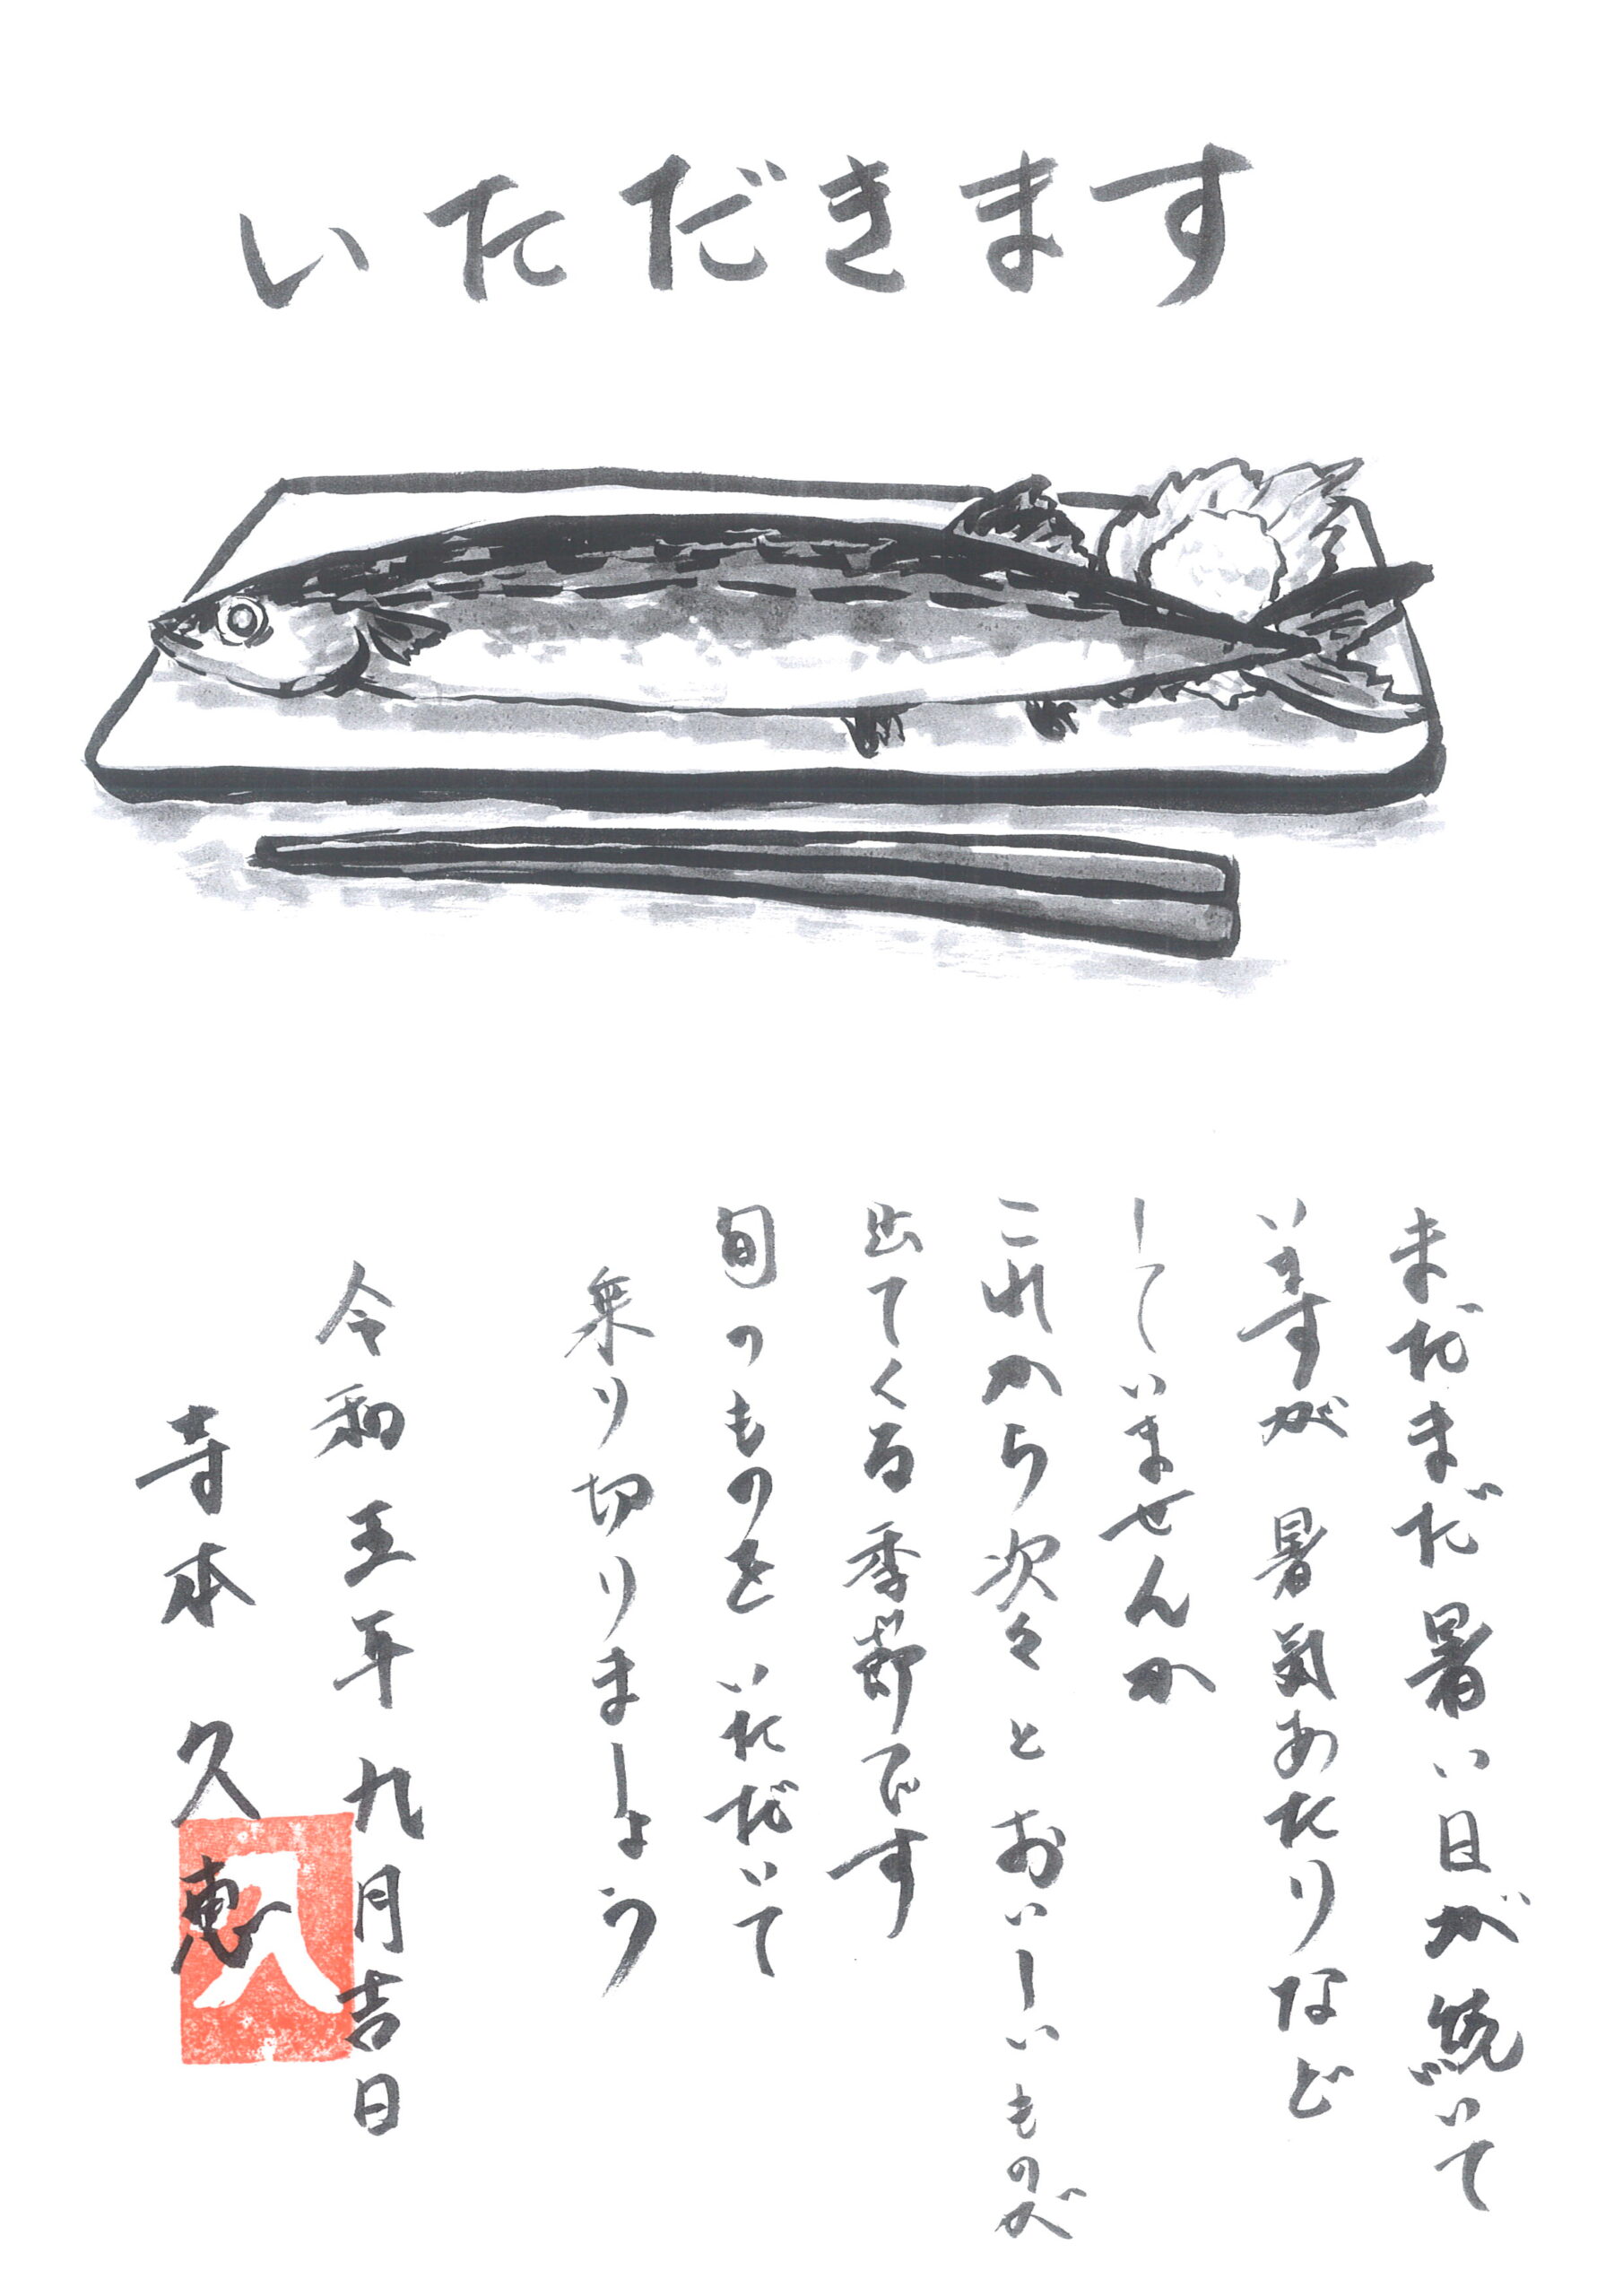 いただきます
まだまだ暑い日が続いて
いますが 暑気あたりなど
していませんか
これから次々と おいしいものが
出てくる季節です
旬のものを いただいて
乗り切りましょう
令和五年 九月吉日
寺本 久恵
久